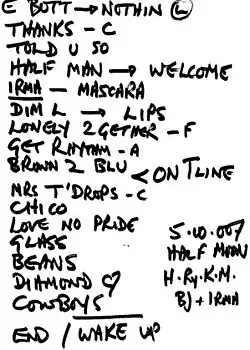 E BUTT → NOTHIN Ⓛ
THANKS - C
TOLD U SO
HALF MAN → WELCOME
IRMA - MASCARA
DIM L → LIPS
LONELY 2GETHER - F
GET RHYTHM - A
BROWN 2 BLU
< ON T LINE
MRS T'DROPS - C
CHICO
LOVE NO PRIDE
GLASS
BEANS
DIAMOND ♡
COWBOYS
END / WAKE UP
5.10.007
HALF MOON
H.Ry.K.M.
BJ + IRMA